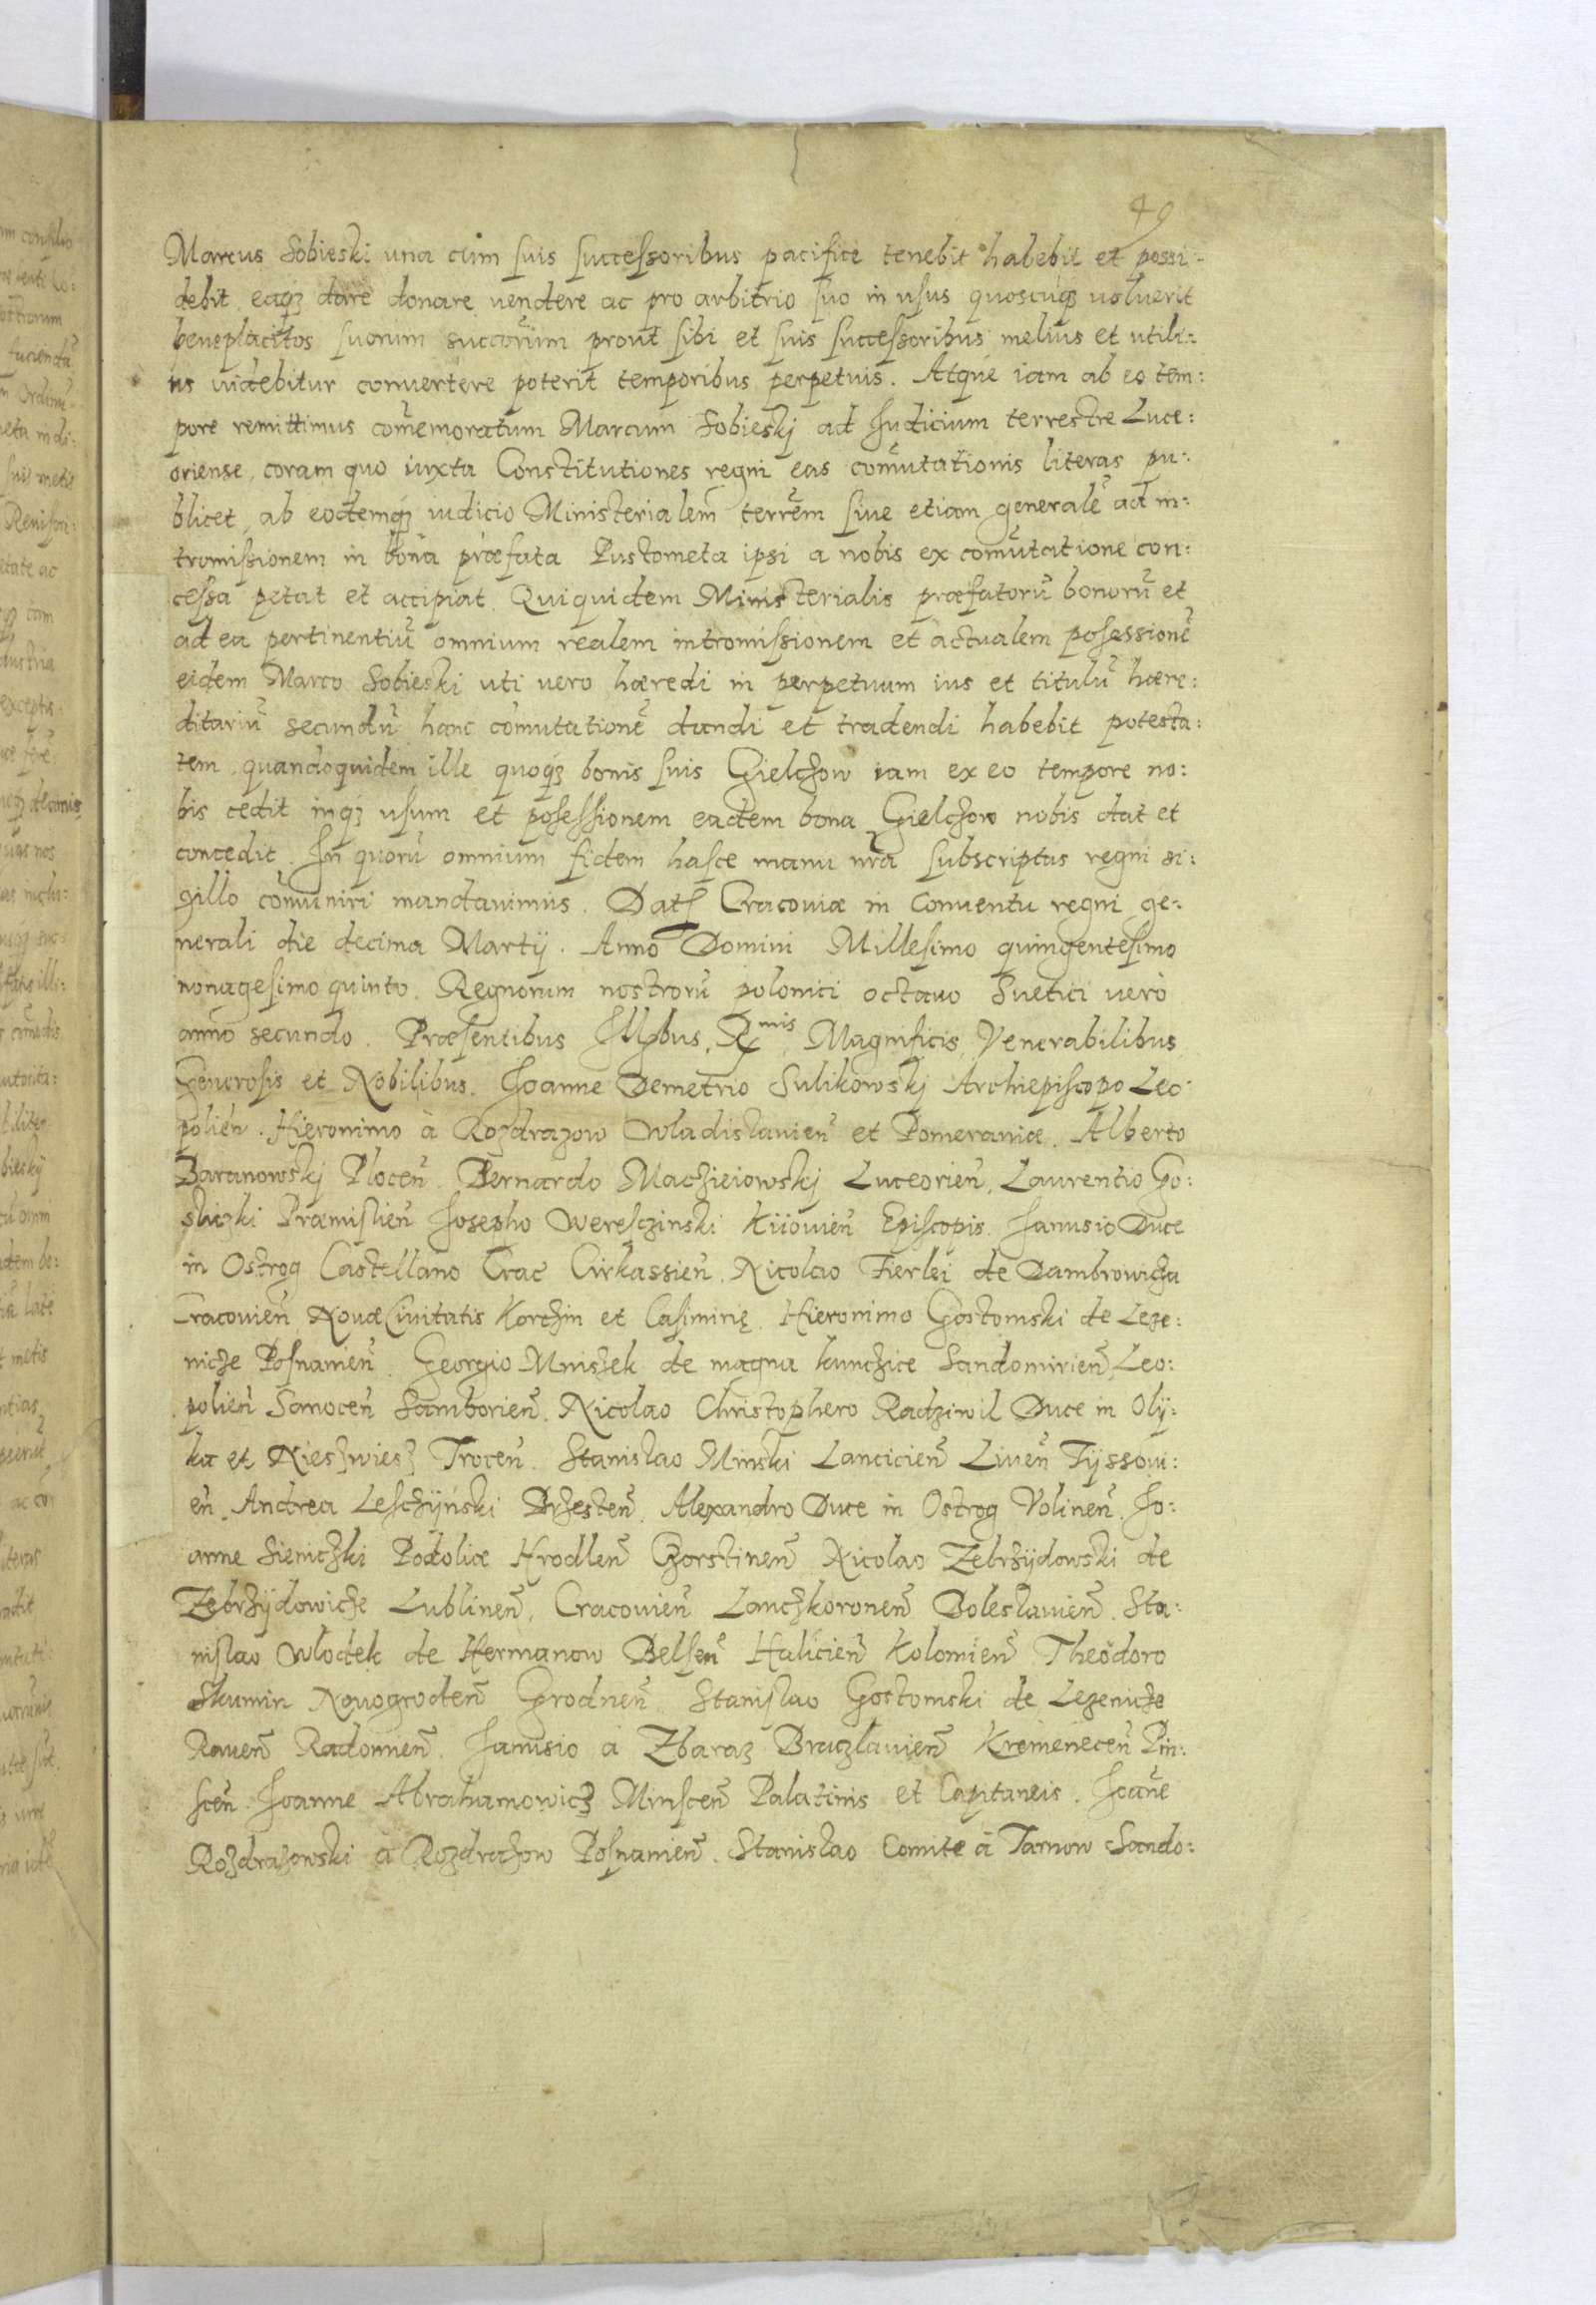 49
Marcus Sobieski una cum suis successoribus pacifice tenebit habebit et possi-
debit eaqꝫ dare donare vendere ac pro arbitrio suo in usus quoscu̅qꝫ voluerit
beneplacitos suorum succoru̅m prout sibi et suis successoribus melius et utili:
us videbitur convertere poterit temporibus perpetuis. Atque iam ab eo tem:
pore remittimus com̅emoratum Marcum Sobieskj ad Judicium terrestre Luce:
oriense, coram quo iuxta Constitutiones regni eas com̅utationis literas pu:
blicet, ab eodemqꝫ iudicio Ministerialem terr̅em sive etiam generale̅ ad in:
tromissionem in bona præfata Pustometa ipsi a nobis ex com̅utatione con:
cessa petat et accipiat. Qui quidem Ministerialis præfatoru̅ bonoru̅ et
ad ea pertinentiu̅ omnium realem intromissionem et actualem possessione̅
eidem Marco Sobieski uti vero hæredi in perpetuum ius et titulu̅ hære:
ditariu̅ secundu̅ hanc com̅utatione̅ dandi et tradendi habebit potesta:
tem, quandoquidem ille quoqꝫ bonis suis Gielchow iam ex eo tempore no:
bis cedit inqꝫ usum et possessionem eadem bona Gielchow nobis dat et
concedit. In quoru̅ omnium fidem hasce manu nr̅a subscriptas regni si:
gillo com̅uniri mandavimus. Dat. Cracoviæ in Conventu regni ge:
nerali die decima Martij. Anno Domini Millesimo quingentesimo
nonagesimo quinto. Regnorum nostroru̅ polonici octavo Suetici verò
anno secundo. Præsentibus Illꝫbus, Rmis, Magnificis, Venerabilibus
Generosis et Nobilibus. Joanne Demetrio Sulikowskj Archiepiscopo Leo:
polien̅. Hieronimo à Rozdrazow Wladislavien̅ et Pomeraniæ. Alberto
Baranowskj Plocen̅. Bernardo Maczieiowskj Luceorien̅, Laurentio Go:
sliczki Præmislien̅ Josepho Weresczinski Kiiovien̅ Episcopis. Janusio Duce
in Ostrog Castellano Crac̅ Cirkassien̅. Nicolao Fierlei de Dambrowicza
Cracovien̅ Novæ Civitatis Korchin et Casimirię. Hieronimo Gostomski de Leze:
nicze Posnanien̅. Georgio Mniszek de magna kunchice Sandomirien̅ Leo:
polien̅ Sanocen̅ Samborien̅. Nicolao Christophero Radziwil Duce in Oly:
ka et Nieszwiesz Trocen̅. Stanislao Minski Lancicien̅ Liven̅ Tyssovi:
en̅. Andrea Leschyński Brzesten̅. Alexandro Duce in Ostrog Volinen̅. Jo:
anne Sieniczki Podoliæ Hrodlen̅ Chorstinen̅ Nicolao Zebrzydowski de
Zebrzydowicze Lublinen̅, Cracovien̅ Lanczkoronen̅ Boleslavien̅. Sta:
nislao Wlodek de Hermanow Belsen̅ Halicien̅ Kolomien̅ Theodoro
Skumin Novogroden̅ Grodnen̅ Stanislao Gostomski de Lezenicze
Raven̅ Radomien̅. Janusio a Zbaraz Braczlavien̅ Kremenecen̅ Pin:
scen̅. Joanne Abrahamowicz Minscen̅ Palatinis et Capitaneis. Joan̅e
Rozdrazowski à Rozdrazow Posnanien̅. Stanislao Comite à Tarnow Sando: